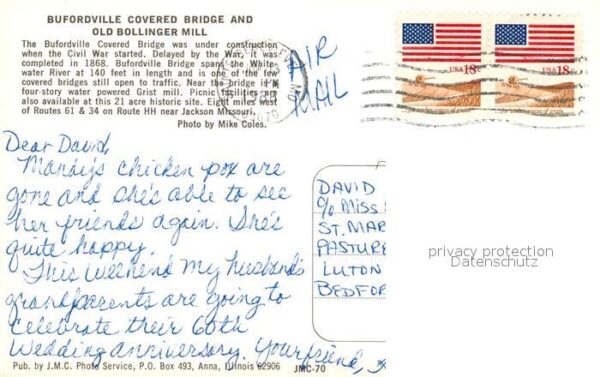 BUFORDVILLE COVERED BRIDGE AND
OLD BOLLINGER MILL
The Bufordville Covered Bridge was under construction
when the Civil War started. Delayed by the War, it was
completed in 1868. Bufordville Bridge spans the White-
water River at 140 feet in length and is one of the few
covered bridges still open to traffic. Near the bridge is a
four-story water powered Grist mill. Picnic facilities are
also available at this 21 acre historic site. Eight miles west
of Routes 61 & 34 on Route HH near Jackson Missouri.
Photo by Mike Coles.
AIR
MAIL
USA 18c
USA 18c
Dear David,
Mandy's chicken pox are
gone and she's able to see
her friends again. She's
quite happy.
This weekend my husband's
grandparents are going to
celebrate their 60th
Wedding anniversary. Your friend,
DAVID
c/o MISS
ST. MAR
PASTURE
LUTON
BEDFOR
privacy protection
Datenschutz
Pub. by J.M.C. Photo Service, P.O. Box 493, Anna, Illinois 62906
JMC-70